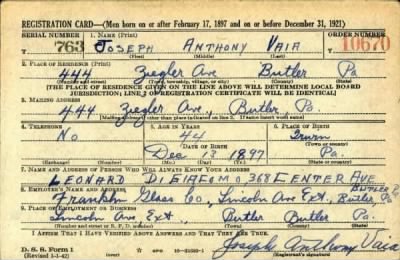 REGISTRATION CARD—(Men born on or after February 17, 1897 and on or before December 31, 1921)
SERIAL NUMBER 1. NAME (Print) ORDER NUMBER
T 763 JOSEPH ANTHONY VAIA 10670
(First) (Middle) (Last)
2. PLACE OF RESIDENCE (Print)
444 Ziegler Ave, Butler Pa
(Number and street) (Town, township, village, or city) (County) (State)
[THE PLACE OF RESIDENCE GIVEN ON THE LINE ABOVE WILL DETERMINE LOCAL BOARD
JURISDICTION; LINE 2 OF REGISTRATION CERTIFICATE WILL BE IDENTICAL]
3. MAILING ADDRESS
444 Ziegler Ave, Butler, Pa.
[Mailing address if other than place indicated on line 2. If same insert word same]
4. TELEPHONE 5. AGE IN YEARS 6. PLACE OF BIRTH
No 44
DATE OF BIRTH (Town or county)
Dec 13 1897 Pa
(Exchange) (Number) (Mo.) (Day) (Yr.) (State or country)
7. NAME AND ADDRESS OF PERSON WHO WILL ALWAYS KNOW YOUR ADDRESS
LEONARD DI GIACOMO. 368 CENTER AVE
BUTLER Pa
8. EMPLOYER'S NAME AND ADDRESS
Franklin Glass Co, Lincoln Ave Ext, Butler, Pa
9. PLACE OF EMPLOYMENT OR BUSINESS
Lincoln Ave Ext, Butler Butler Pa.
(Number and street or R. F. D. number) (Town) (County) (State)
I AFFIRM THAT I HAVE VERIFIED ABOVE ANSWERS AND THAT THEY ARE TRUE.
D. S. S. Form 1
(Revised 1-1-42) (over)
Joseph Anthony Vaia
(Registrant's signature)